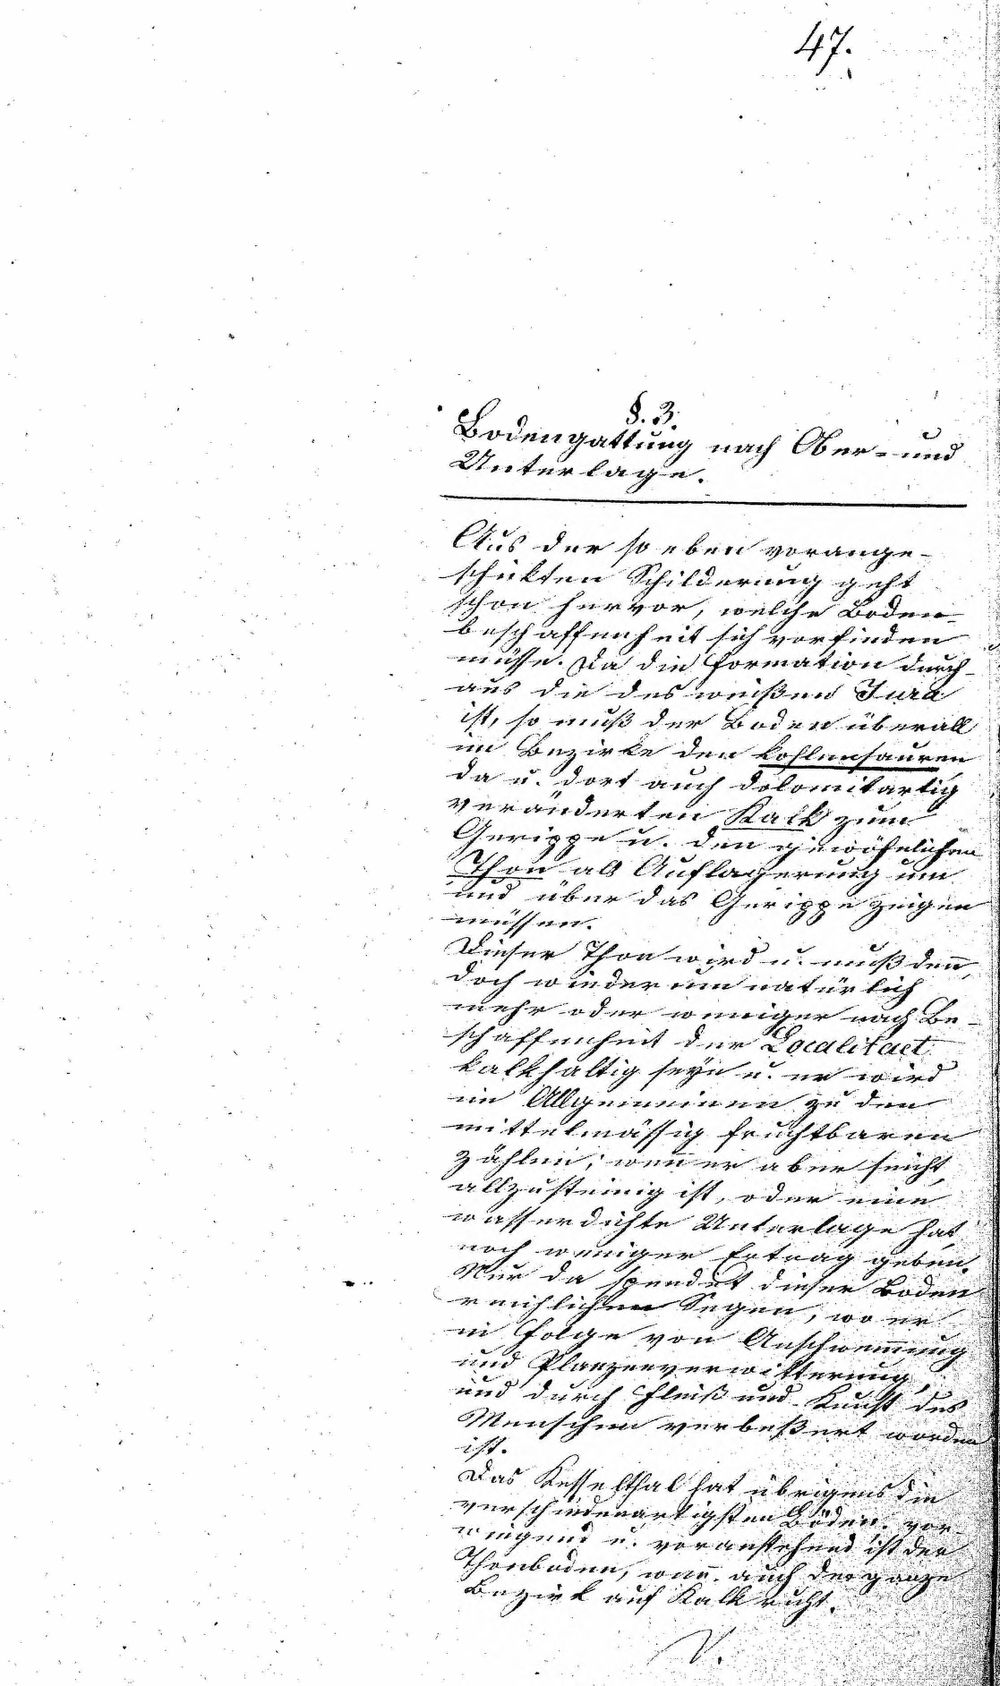 47.
§. 3.
Bodengattung nach Ober- und
Unterlage.
Aus der so eben vorange-
schickten Schilderung geht
schon hervor, welche Boden-
beschaffenheit sich vorfinden
müsse. Da die Formation durch-
aus die des weißen Jura
ist, so muß der Boden überall
im Bezirke den kohlensauren
da u. dort auch dolomitartig
veränderten Kalk zum
Gerippe u. den gewöhnlichen
Thon als Auflagerung um
und über das Gerippe zeigen
müssen.
Dieser Thon wird u. muß den̅
doch wiederum natürlich
mehr oder weniger nach Be-
schaffenheit der Localitaet
kalkhaltig seyn u. er wird
im Allgemeinen zu den
mittelmässig fruchtbaren
zählen; wen̅ er aber seicht,
allzusteinig ist, oder eine
wasserdichte Unterlage hat,
noch weniger Ertrag geben.
Nur da spendet dieser Boden
reichlichen Segen, wo er
in Folge von Anschwem̅ung
und Planzenverwitterung,
und durch Fleiß und Kunst des
Menschen verbeßert worden
ist.
Das Kesselthal hat übrigens die
verschiedenartigsten Böden. vor-
wiegend u. voranstehend ist der
Thonboden, wen̅ auch der ganze
Bezirk auf Kalk ruht.
V.